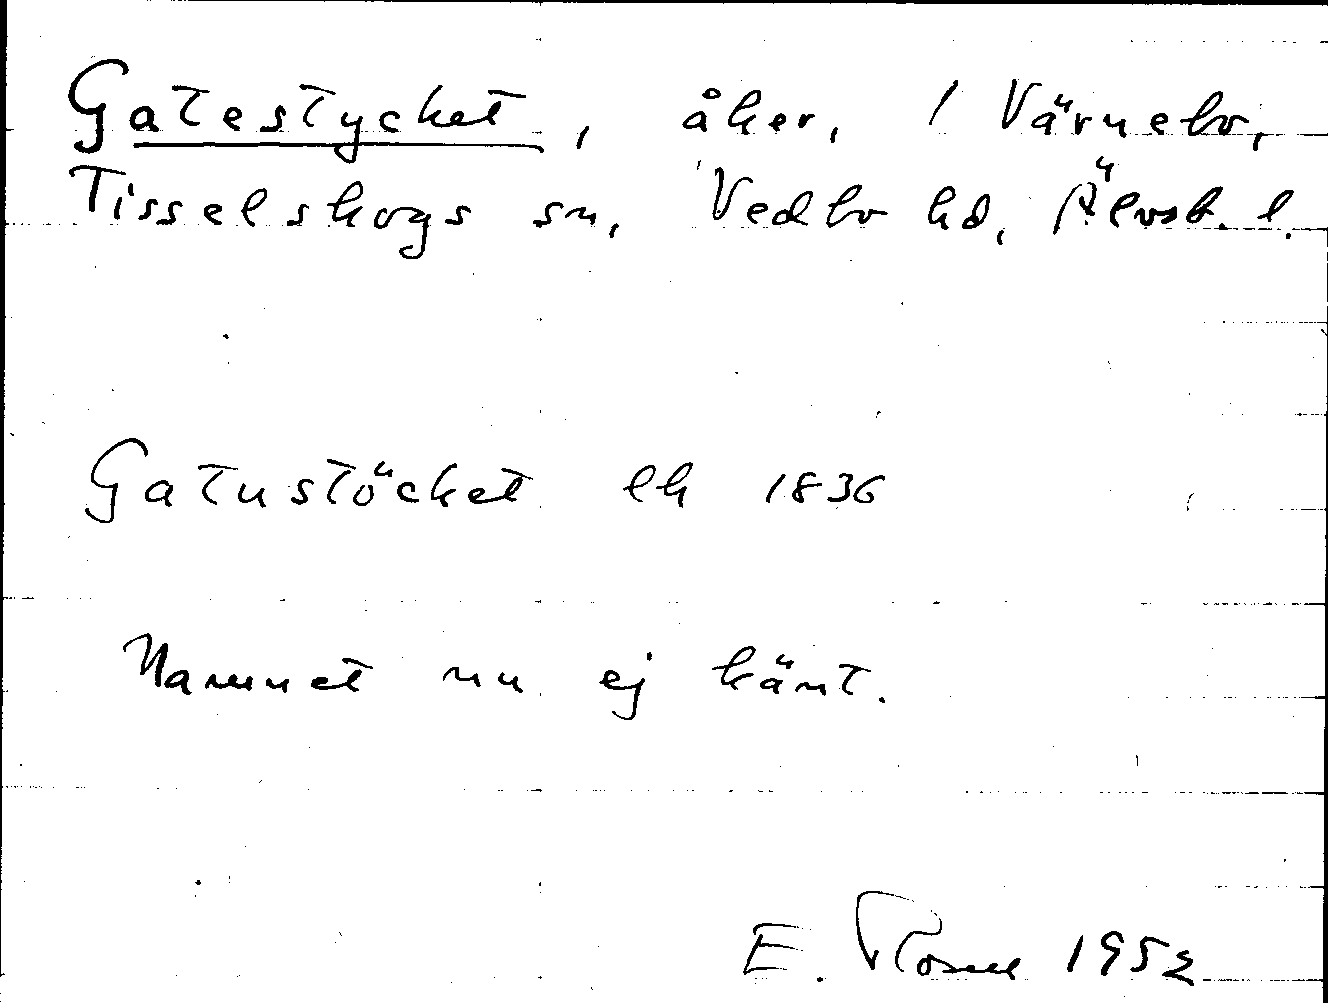 Gatestycket, åker, / Värnebo,
Tisselskogs sn, Vedbo hd, Älvsb. l.
Gatustöcket lh 1836
Namnet nu ej känt.
E. 1952